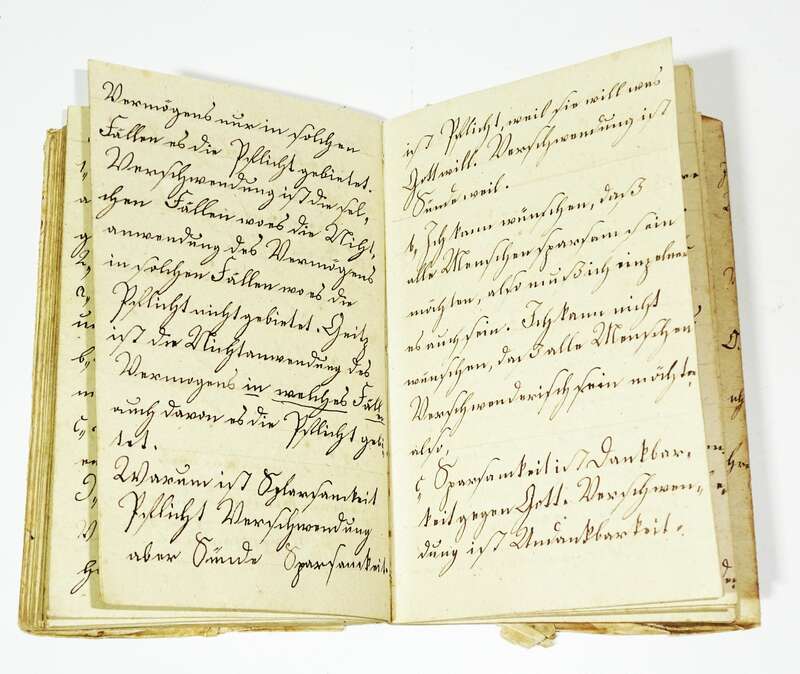 Vermögens nur in solchen
Fällen es die Pflicht gebietet.
Verschwendung ist die sol,
chen Fällen wo es die Nicht,
anwendung des Vermögens
in solchen Fällen wo es die
Pflicht nicht gebietet. Geitz
ist die Nichtanwendung des
Vermogens in welches Fäll
auch davon es die Pflicht gebi,
tet.
Warum ist Sparsamkeit
Pflicht Verschwendung
aber Sünde Sparsamkeit.
ist Pflicht, weil sie will was
Gott will. Verschwendung ist
Sünde weil.
b, Ich kann wünschen, daß
alle Menschen sparsam sein
möchten, also muß ich einzelner
es auch sein. Ich kann nicht
wünschen, das alle Menschen
Verschwenderisch sein möchte,
also,
c, Sparsamkeit ist Dankbar,
keit gegen Gott. Verschwen,
dung ist Undankbarkeit.